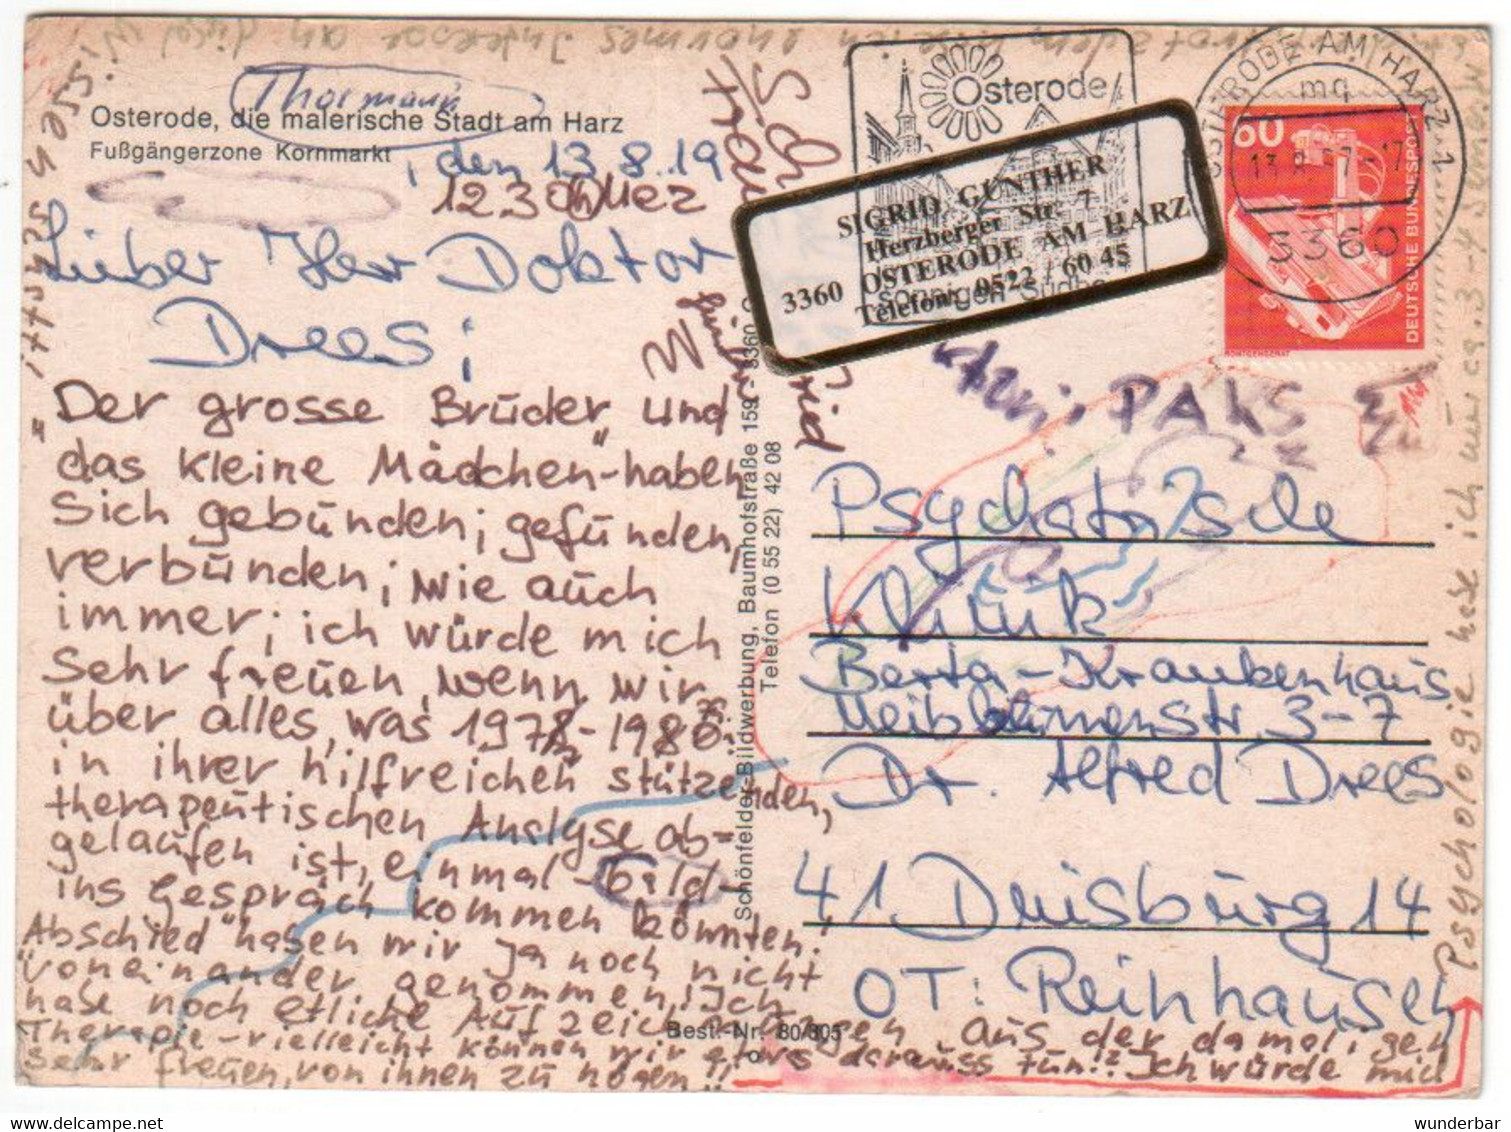 Thormann
Osterode, die malerische Stadt am Harz
Fußgängerzone Kornmarkt
, den 13.8.19
1230 Uhr
Lieber Herr Doktor
Drees;
Der grosse Brüder, und
das kleine Mädchen"-haben
Sich gebünden; gefünden,
verbünden; wie auch
immer; ich würde mich
Sehr freuen, wenn wir
über alles, was 1978-1980
in ihrer hilfreichen stützenden,
therapeutischen Analyse ab=
gelaufen ist, einmal bald
ins Gespräch kommen könnten!
Abschied" haben wir ja noch nicht
voneinander genommen! Ich
habe noch etliche Aufzeichnungen aus der damaligen
Therapie-vielleicht können wir etwas daraus tun!! Ich würde mich
sehr freuen, von ihnen zu hören!!
Schönfelder-Bildwerbung, Baumhofstraße 159 - 3360 O
Telefon (0 55 22) 42 08
Best.-Nr. 80/305
Osterode
sonnigen Südha
SIGRID GÜNTHER
Herzberger Str. 7
3360 OSTERODE AM HARZ
Telefon: 0522 / 60 45
OSTERODE AM HARZ 1
mq
13.8. -17
3360
60
DEUTSCHE BUNDESPOST
RÖNTGENGERÄT
PAKS
Psychatrische
Klinik
Berta-Krankenhaus
Dr. Alfred Drees
41 Duisburg 14
OT: Reinhausen
Psychologie habe ich nur ca. 3-4 Semester
trotzdem enormes Interesse an dieser Wissenschaft!"